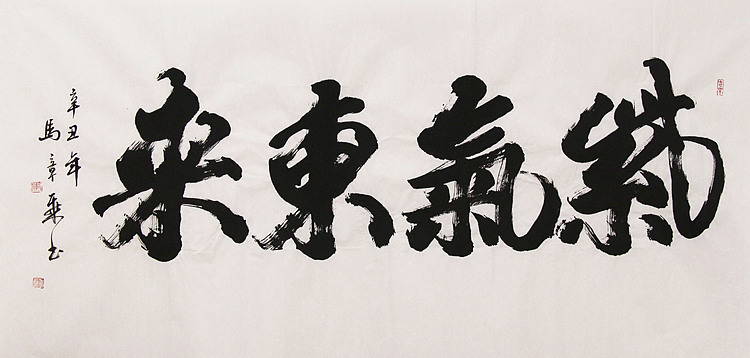 紫氣東來
辛丑年
馬章乗书